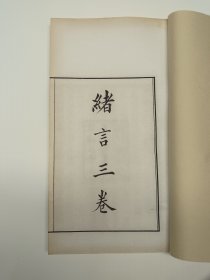 緒言三卷